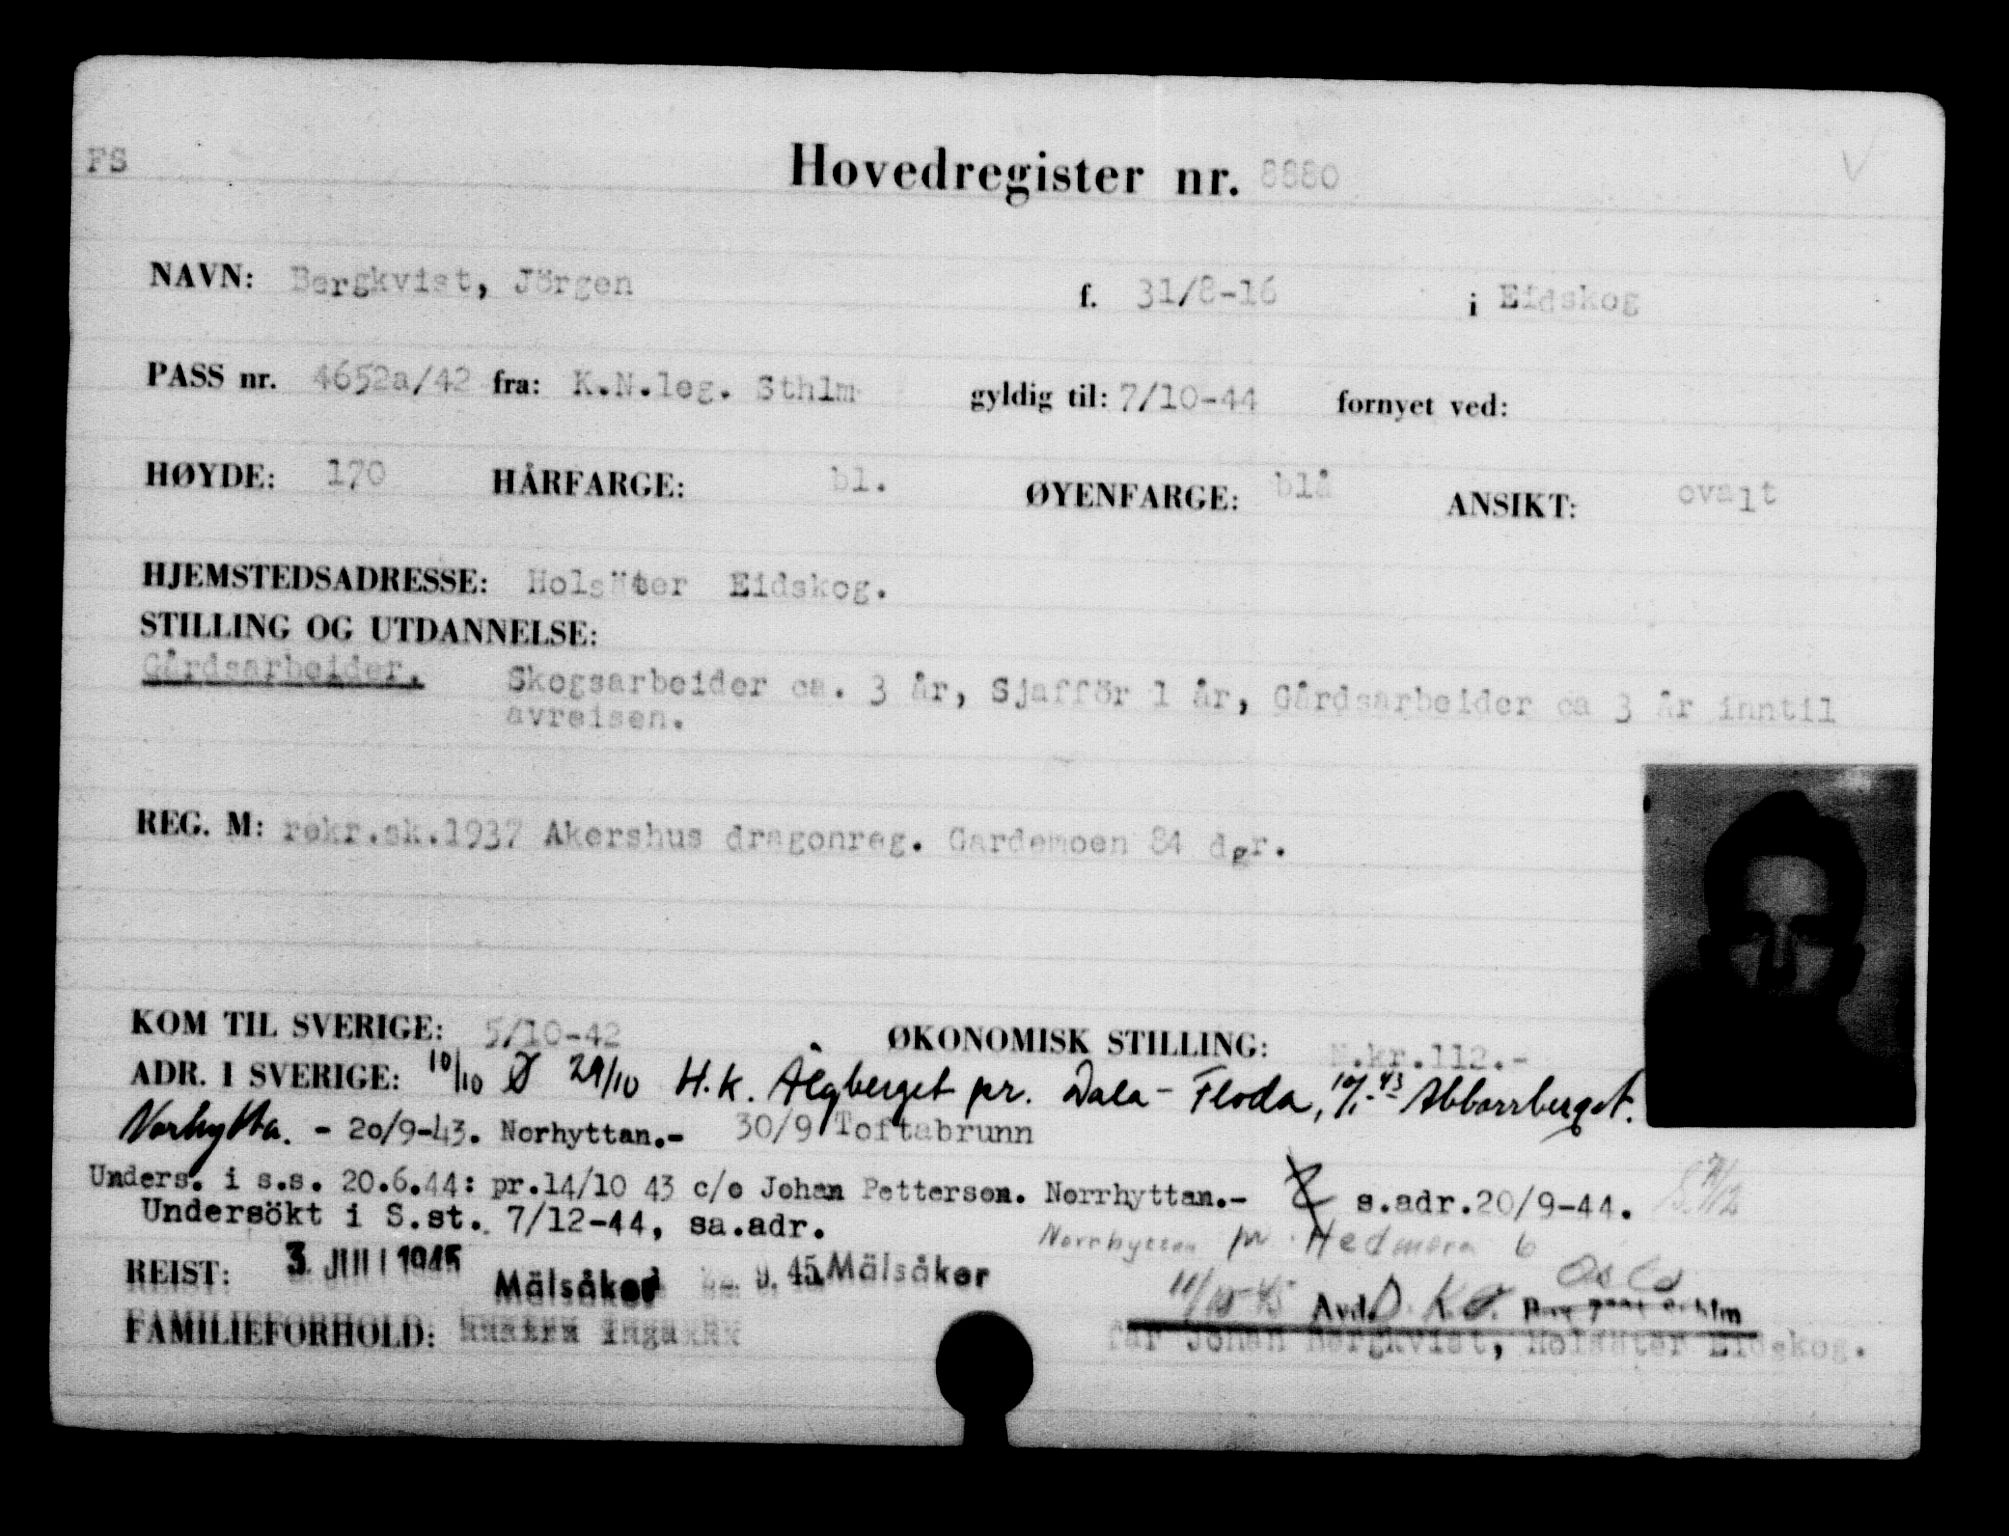 FS
Hovedregister nr. 8880
NAVN: Bergkvist, Jörgen f. 31/8-16 i Eidskog
PASS nr. 4652a/42 fra: K.N.leg. Sthlm gyldig til: 7/10-44 fornyet ved:
HØYDE: 170 HÅRFARGE: bl. ØYENFARGE: blå ANSIKT: ovalt
HJEMSTEDSADRESSE: Holsäter Eidskog.
STILLING OG UTDANNELSE:
Gårdsarbeider. Skogsarbeider ca. 3 år, Sjafför 1 år, Gårdsarbeider ca 3 år inntil
avreisen.
REG. M: rekr.sk.1937 Akershus dragonreg. Gardemoen 84 dgr.
KOM TIL SVERIGE: 5/10-42 ØKONOMISK STILLING: N.kr.112.-
ADR. I SVERIGE: 10/10 Ø 29/10 H.k. Älgberget pr. Dala-Floda, Abborrberget.
Norhytta. - 20/9-43. Norhyttan.- 30/9 Toftabrunn
Unders. i s.s. 20.6.44: pr.14/10 43 c/o Johan Petterson. Norrhyttan.- s.adr.20/9-44.
Undersökt i S.st. 7/12-44, sa.adr.
Norrhyttan pr. Hedmora 6
REIST: 3. JULI 1945 Mälsåker 9. 45 Mälsåker 11/10-45 Avd. Oslo
FAMILIEFORHOLD: Inga far Johan Bergkvist, Holsäter Eidskog.